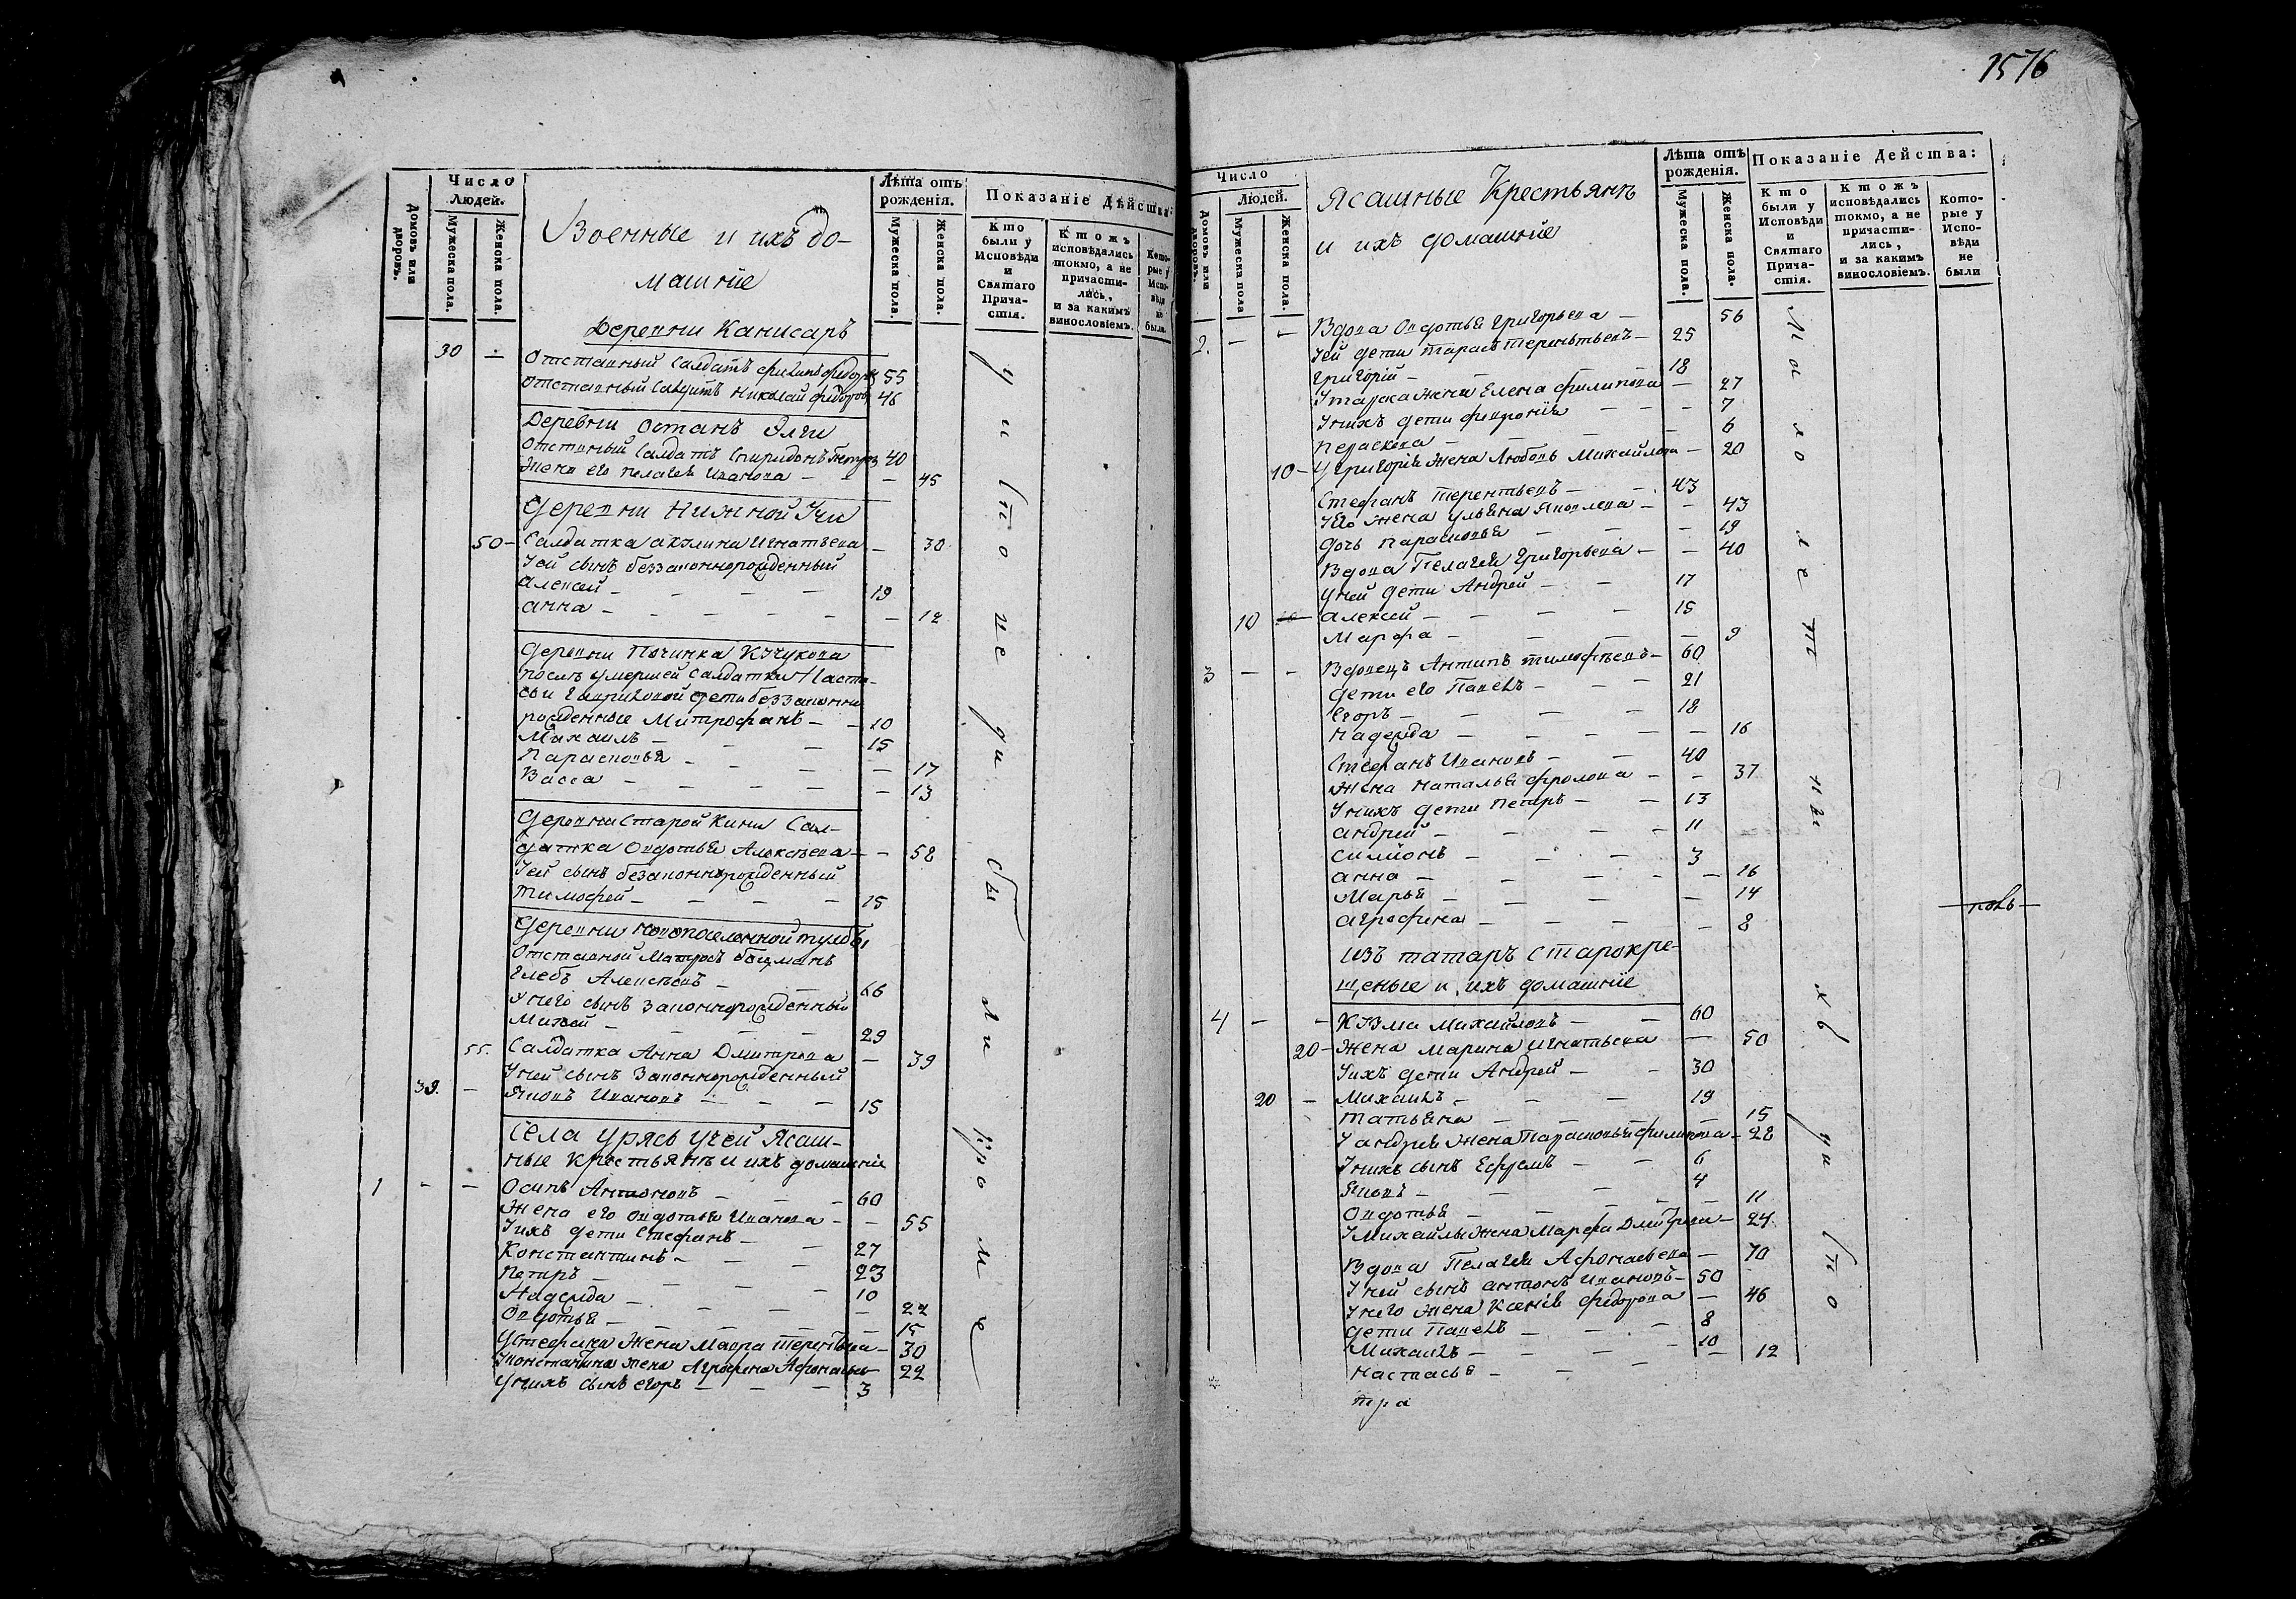 Число
Людей.
Домовъ или дворовъ.
Мужеска пола.
Женска пола.
Военные и ихъ до-
машніе
Лѣта отъ
рожденія.
Мужеска пола.
Женска пола.
Показаніе Дѣйства:
Кто были у Исповѣди и Святаго Причастія.
Ктожъ исповѣдались токмо, а не причастились, и за какимъ винословіемъ.
Которые у Исповѣди не были.
Деревни Канисаръ
30 — Отставный Салдатъ Филипъ Федоровъ 55
Отставный Салдатъ Николай Федоровъ 46
Деревни Останъ Элги
Отставный Салдатъ Спиридонъ Петровъ 40
Жена его Пелагея Иванова — — 45
Деревни Нижной Учи
50 — Салдатка Акулина Игнатьева — 30
У ей сынъ беззаконнорожденный
Алексей — — — — 19
Анна — — — — — 12
Деревни Починка Кучукова
Послѣ умершей Салдатки Наста-
сьи Гавриловой дети беззаконно
рожденные Митрофанъ — — 10
Михаилъ — — — 15
Парасковья — — — — 17
Васса — — — — — 13
Деревни Старой Кини Сал-
датка Овдотья Алексѣева — — 52
У ей сынъ безаконнорожденный
Тимофей — — — — 15
Деревни Новопоселенной Тулбы
Отставной Матросъ боцманъ
Глебъ Алексѣевъ — — 66
У него сынъ законнорожденный
Михей — — — — 29
55. Салдатка Анна Дмитрева — 39
У ней сынъ законнорожденный
39. — Яковъ Ивановъ — — — 15
Села Урясь Учей Ясаш-
ные крестьянѣ и ихъ домашніе
1 — — Осипъ Антоновъ — — — 60
Жена его Овдотья Иванова — — 55
У ихъ дети Стефанъ — — 27
Константинъ — — 23
Петръ — — — — 10
Надежда — — — — 22
Овдотья — — — — 15
У Стефана жена Мавра Терентьева — 30
У Константина жена Агрофена Афонасьева 22
У нихъ сынъ Егоръ — — — 3
у и спо ве ди бы ли кро м е
1576
Число
Людей.
Домовъ или дворовъ.
Мужеска пола
Женска пола.
Ясашные Крестьянѣ
и ихъ домашніе
Лѣта отъ
рожденія.
Мужеска пола.
Женска пола.
Показаніе Действа:
Кто были у Исповѣди и Святаго Причастія.
Ктожъ исповѣдались токмо, а не причастились, и за какимъ винословіемъ.
Которые у Исповѣди не были
2. — — Вдова Овдотья Григорьева — 56
У ей дети Тарасъ Терентьевъ — 25
Григорій — — 18
У Тараса жена Елена Филипова — 27
У нихъ дети Февронія — — — 7
Пераскева — — — — 6
10 — У Григорія жена Любовь Михайлова — 20
Стефанъ Терентьевъ — — 43
У Его жена Ульяна Яковлева — — 43
Дочь Парасковья — — 19
Вдова Пелагея Григорьева — — 40
У ней дети Андрей — — 17
10 Алексей — — — — 15
Марфа — — — — — 9
3 — — Вдовецъ Антипъ Тимофѣевъ — 60
Дети его Павелъ — — — 21
Егоръ — — — — 18
Надежда — — — — — 16
Стефанъ Ивановъ — — 40
Жена Наталья Фролова — — 37
У нихъ дети Петръ — — 13
Андрей — — — — 11
Симионъ — — — 3
Анна — — — — — 16
Марья — — — — — 14
Агрофина — — — — 8
новь
Изъ татаръ старокре-
щеные и ихъ домашніе
4 — — Кузма Михайловъ — — 60
20 — Жена Марина Игнатьева — 50
У ихъ дети Андрей — — 30
20 — Михаилъ — — — 19
Татьяна — — — — 15
У Андрея жена Парасковья Филипова — 28
У нихъ сынъ Ефремъ — — 6
Яковъ — — — 4
Овдотья — — — — — 11
У Михайлы жена Марфа Дмитрева — 24
Вдова Пелагея Афонасьева — 70
У ней сынъ Антонъ Ивановъ — 50
У него жена Ксенія Федорова — 46
Дети Павелъ — — — 8
Михаилъ — — — — 10
Настасья — — — — 12
тра
М а л о л е т н ы х ъ